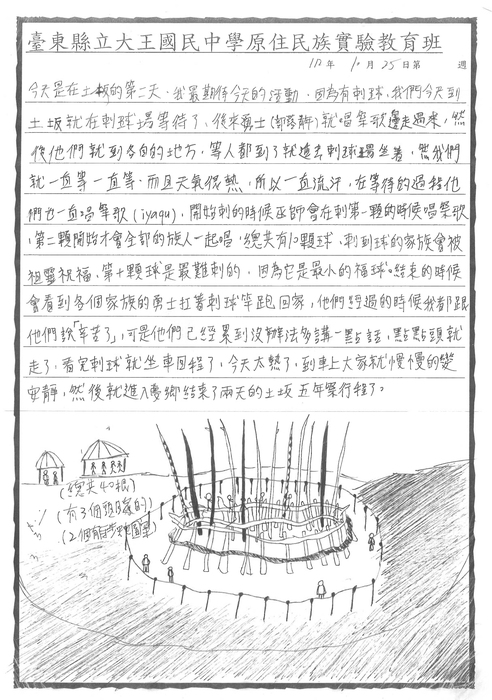 臺東縣立大王國民中學原住民族實驗教育班
10月25日第 週
今天是在土坂的第二天,我最期待今天的活動,因為有刺球,我們今天到
土坂就在刺球場等待了,後來勇士(部落青年)就唱祭歌邊走過來,然
後他們就到各自的地方,等人都到了就進去刺球場坐著,然我們
就一直等一直等,而且天氣很熱,所以一直流汗,在等待的過程他
們也一直唱祭歌(iyaqu),開始刺的時候巫師會在刺第一顆的時候唱祭歌
,第二顆開始才會全部的族人一起唱,總共有10顆球,刺到球的家族會被
祖靈祝福,第十顆球是最難刺的,因為它是最小的福球。結束的時候
會看到各個家族的勇士拉著刺球竿跑回家,他們經過的時候我都跟
他們說「辛苦了」,可是他們已經累到沒辦法多講一點話,點點頭就
走了,看完刺球就坐車回程了,今天太熱了,到車上大家就慢慢的變
安靜,然後就進入夢鄉結束了兩天的土坂五年祭行程了。
(總共40根)
(有3個頭目家的)